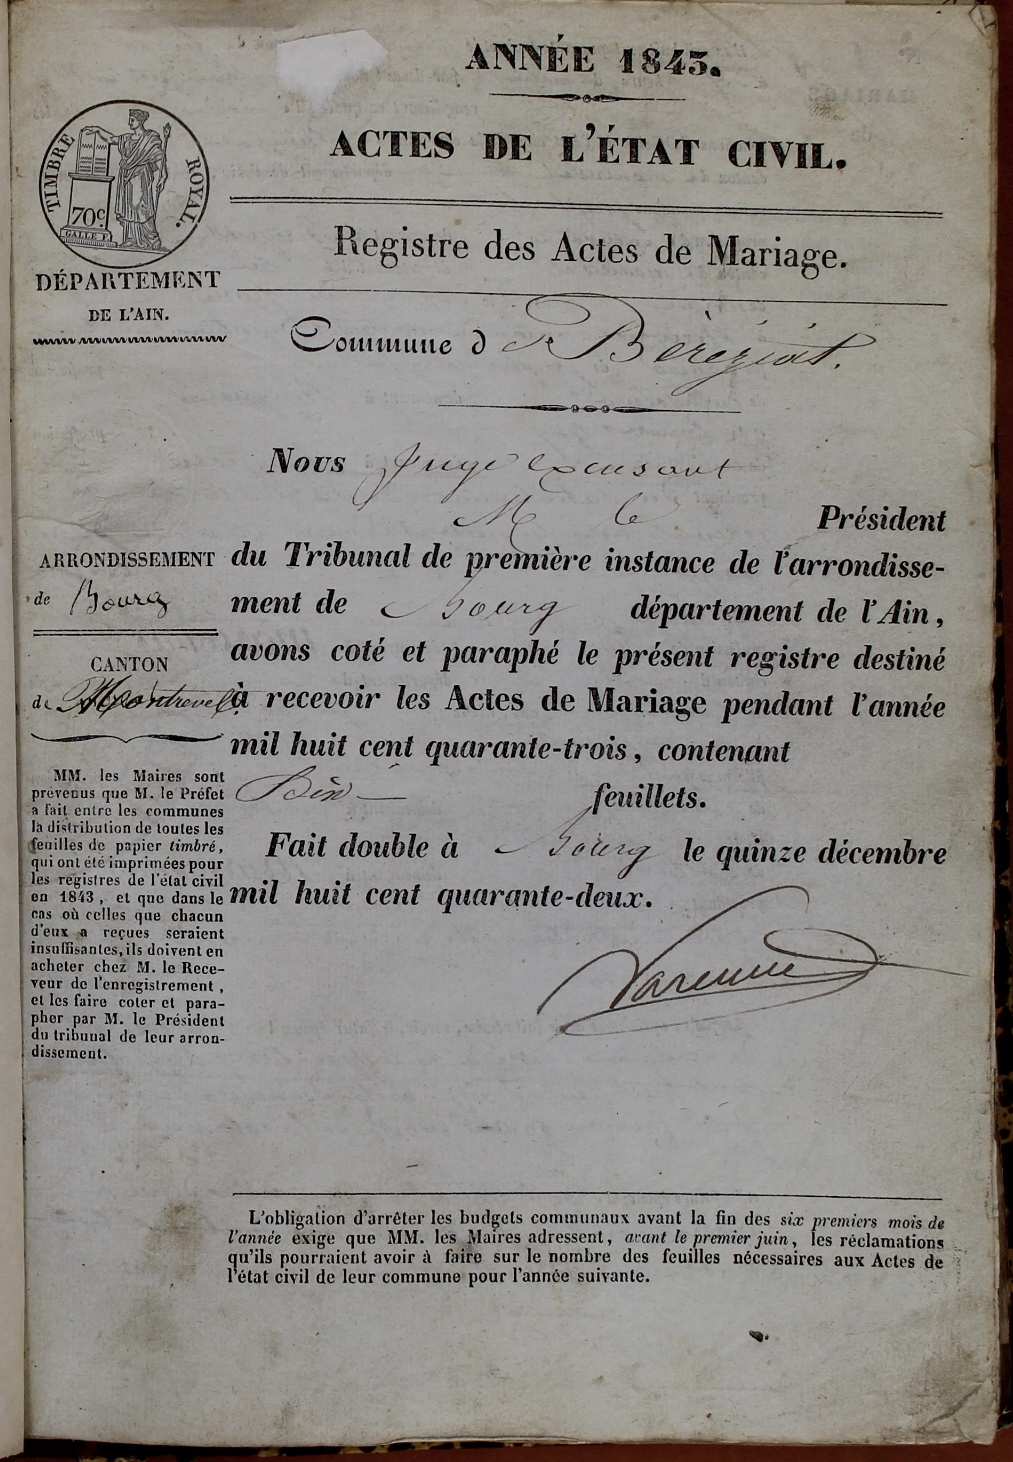 ANNÉE 1843.
ACTES DE L'ÉTAT CIVIL.
TIMBRE ROYAL.
70c
GALLE F.
DÉPARTEMENT
DE L'AIN.
Registre des Actes de Mariage.
Commune de Béréziat.
Nous Juge excusant
M le Président
du Tribunal de première instance de l'arrondisse-
ment de Bourg département de l'Ain,
avons coté et paraphé le présent registre destiné
à recevoir les Actes de Mariage pendant l'année
mil huit cent quarante-trois, contenant
feuillets.
Fait double à Bourg le quinze décembre
mil huit cent quarante-deux.
Varenne
ARRONDISSEMENT
de Bourg
CANTON
de Montrevel
MM. les Maires sont
prévenus que M. le Préfet
a fait entre les communes
la distribution de toutes les
feuilles de papier timbré,
qui ont été imprimées pour
les registres de l'état civil
en 1843, et que dans le
cas où celles que chacun
d'eux a reçues seraient
insuffisantes, ils doivent en
acheter chez M. le Rece-
veur de l'enregistrement,
et les faire coter et para-
pher par M. le Président
du tribunal de leur arron-
dissement.
L'obligation d'arrêter les budgets communaux avant la fin des six premiers mois de
l'année exige que MM. les Maires adressent, avant le premier juin, les réclamations
qu'ils pourraient avoir à faire sur le nombre des feuilles nécessaires aux Actes de
l'état civil de leur commune pour l'année suivante.